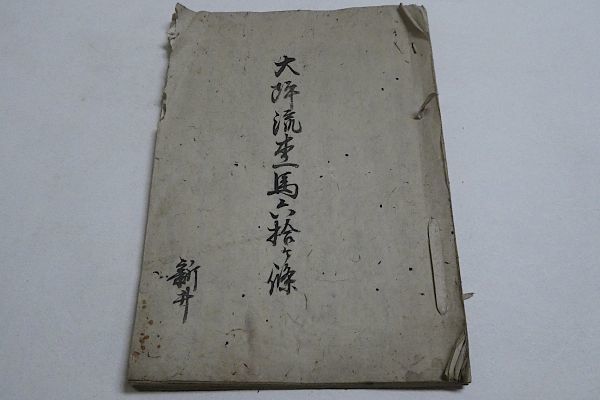 大坪流乗馬六拾ヶ條
新井